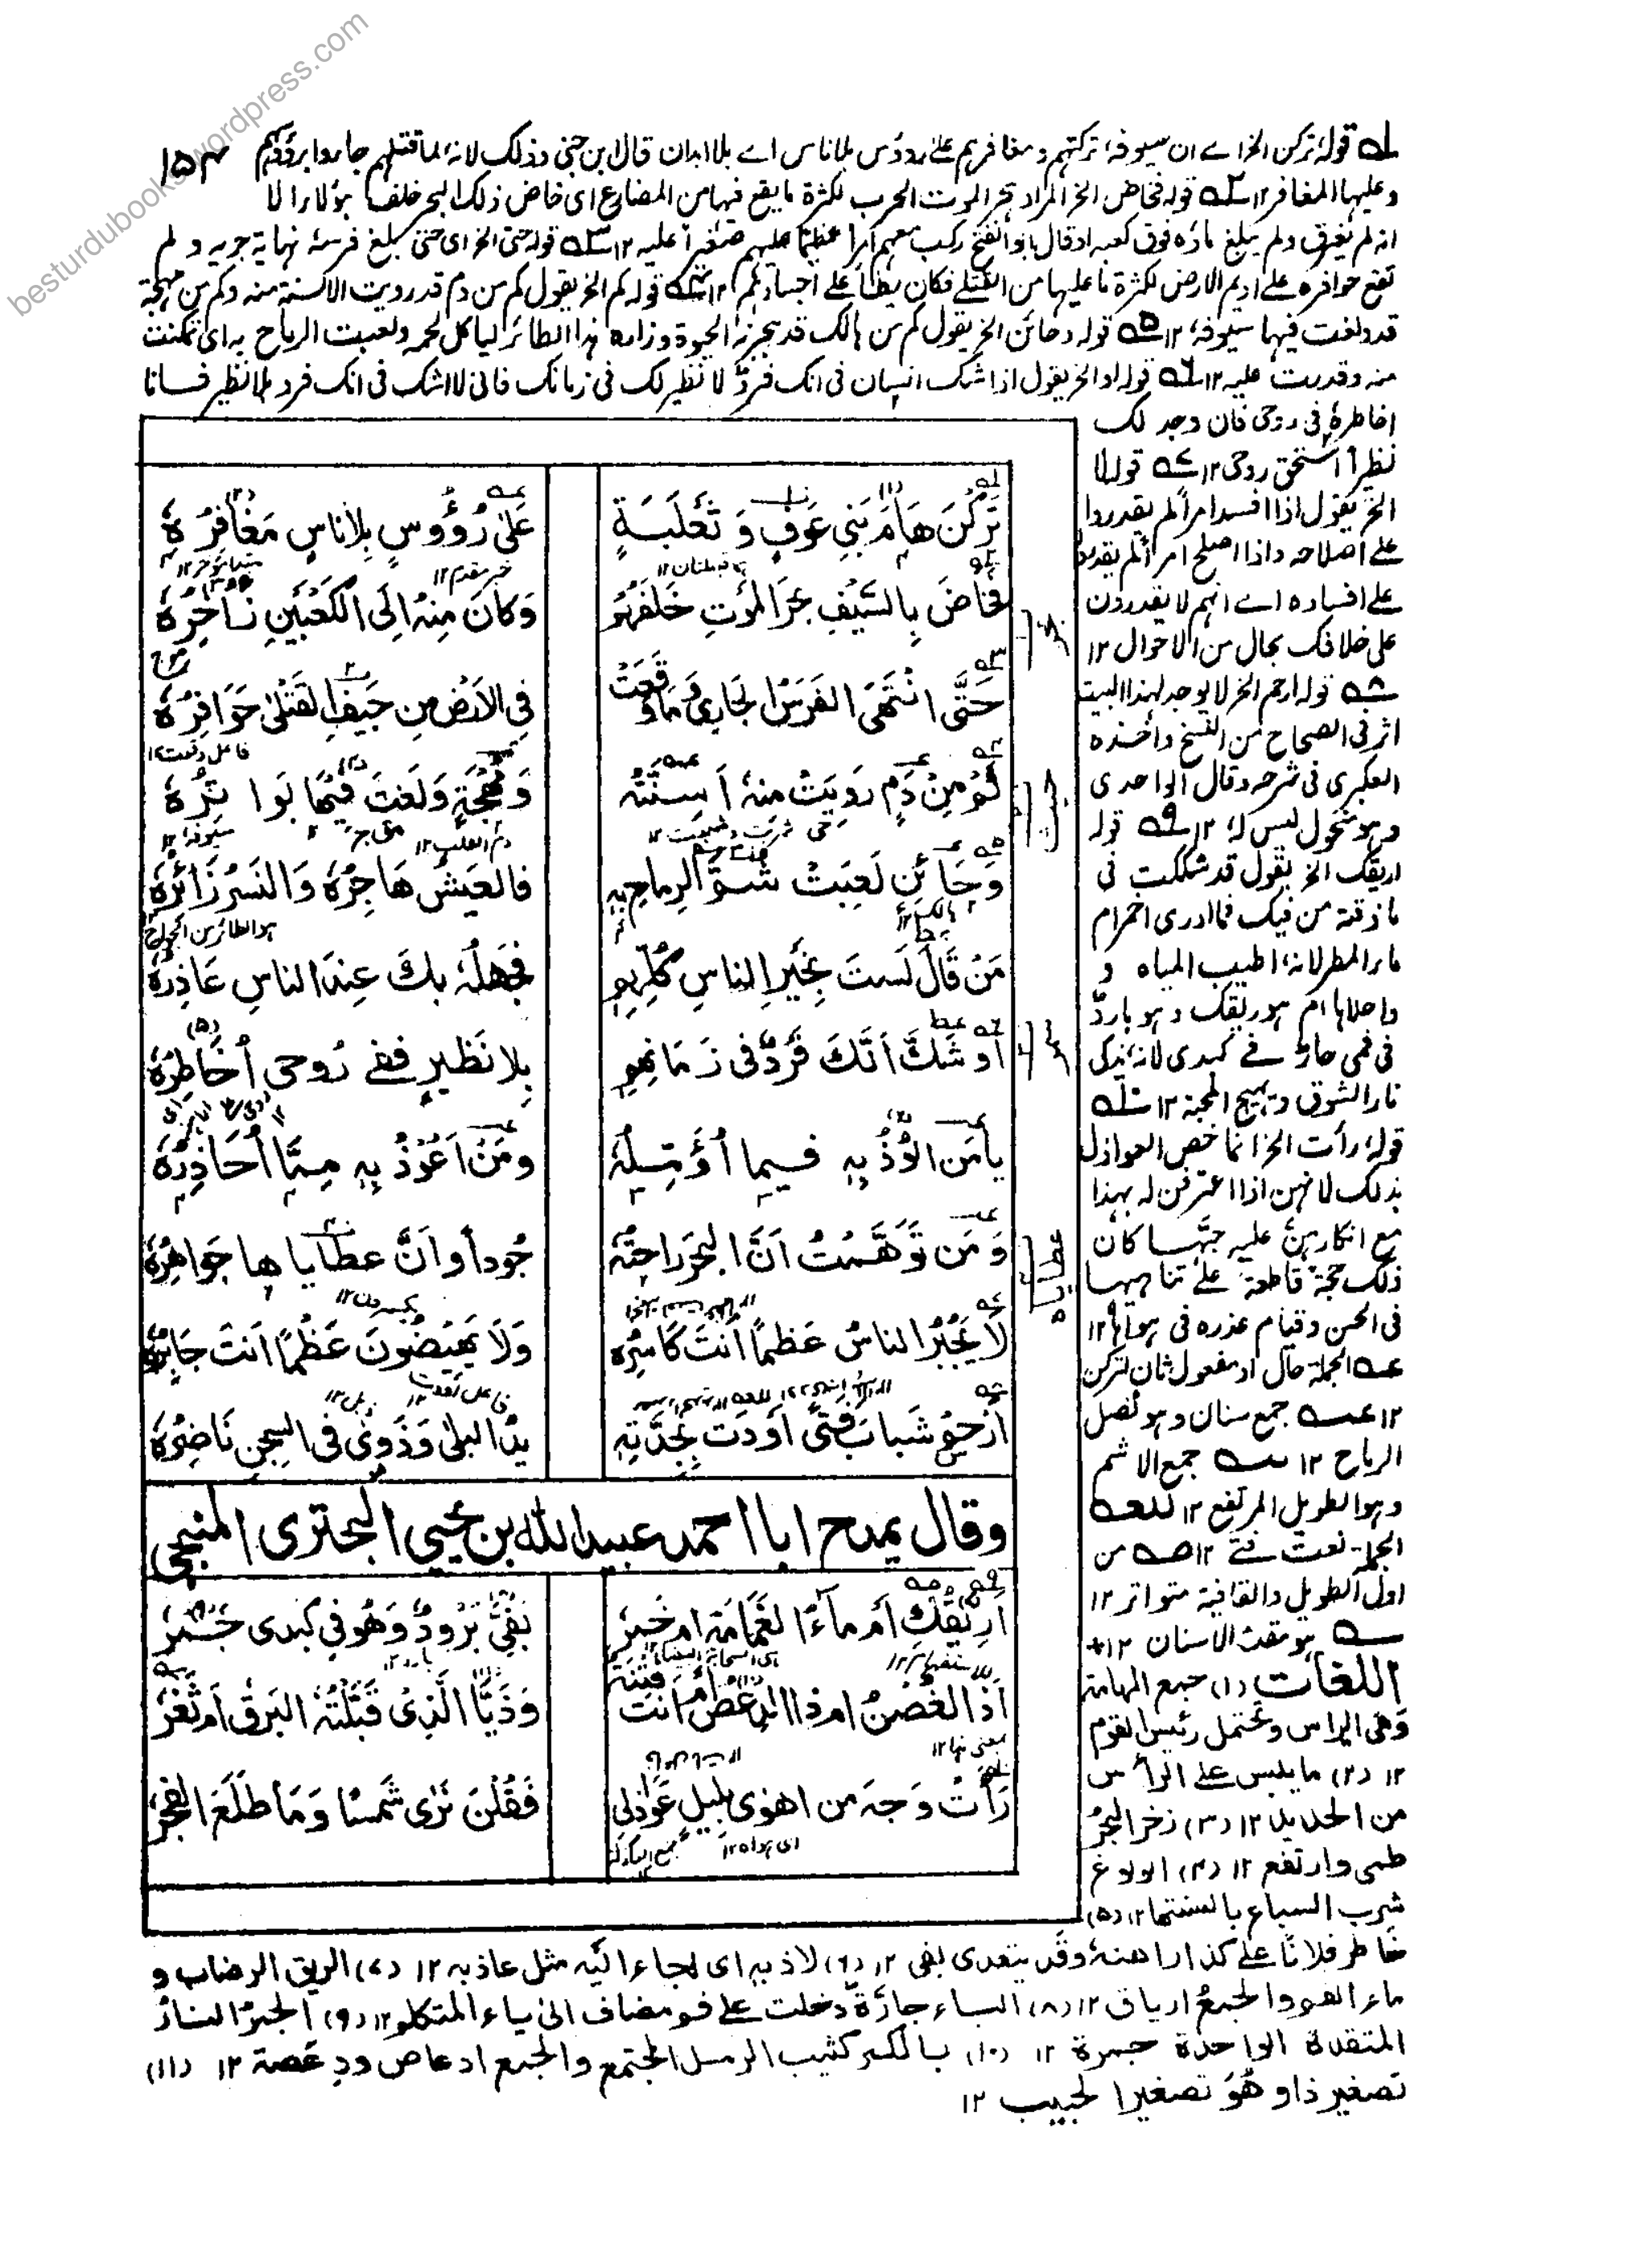 besturdubooks.wordpress.com
١٥٣
له قوله تركن الخ اے ان سيوفه تركتهم و مغافرهم على رؤس بلا ناس اے بلا ابدان قال ابن جنى وذلك لانه لما قتلهم جاءوا برؤسهم
وعليها المغافر ١٢ ٢ه قوله فخاض الخ المراد بحر الموت الحرب لكثرة ما يقع فيها من المضارع اى خاض ذلك البحر خلف هؤلاء الا
انه لم يغرق ولم يبلغ ماءه فوق كعبه او قال ابو الفتح ركب معهم امرا عظيما عليهم صغيرا عليه ١٢ ٣ه قوله حتى الخ اى حتى بلغ فرسه نهاية جريه و لم
تقع حوافره على اديم الارض لكثرة ما عليها من القتلى فكان يطأ على اجسادهم ١٢ ٤ه قوله كم الخ يقول كم من دم قد رويت الاسنة منه وكم من مهجة
قد ولغت فيها سيوفه ١٢ ٥ه قوله وحائن الخ يقول كم من هالك قد هجرته الحيوة وزاره هذا الطائر ليأكل لحمه ولعبت الرماح به اى تمكنت
منه وقدرت عليه ١٢ ٦ه قوله او الخ يقول اذا شك انسان فى انك فرد لا نظير لك فى زمانك فانى لا اشك فى انك فرد بلا نظير فانا
اخاطره فى روحى فان وجد لك
نظيرا استحق روحى ١٢ ٧ه قوله لا
الخ يقول اذا افسد امرا لم يقدروا
على اصلاحه واذا اصلح امرا لم يقدروا
على افساده اے انهم لا يقدرون
على خلافك بحال من الاحوال ١٢
٨ه قوله ارحم الخ لا يوجد لهذا البيت
اثر فى الصحاح من النسخ وأخذه
العكبرى فى شرحه وقال الواحدى
وهو منحول ليس له ١٢ ٩ه قوله
اريقك الخ يقول قد شككت فى
ما ذقته من فيك فما ادرى اخمر ام
ماء المطر لانه اطيب المياه و
واحلاها ام هو ريقك وهو بارد
فى فمى حار فے كبدى لانه يذكى
نار الشوق ويهيج المحبة ١٢ ١٠ه
قوله رأت الخ انما خص العواذل
بذلك لانهن اذا اعترفن له بهذا
مع انكارهن عليه حبها كان
ذلك حجة قاطعة على تناهيها
فى الحسن وقيام عذره فى هواها ١٢
عه الجملة حال او مفعول ثان لتركن
١٢ عه جمع سنان وهو نصل
الرماح ١٢ سه جمع الاشم
وهو الطويل المرتفع ١٢ للعه
الجملة نعت فتى ١٢ صه من
اول الطويل والقافية متواتر ١٢
سه هو مقدم الاسنان ١٢
اللغات (١) جمع الهامة
وهى الراس ويحتمل رئيس القوم
١٢ (٢) ما يلبس على الرأس
من الحديد ١٢ (٣) زخر البحر
طمى وارتفع ١٢ (٤) الولوغ
شرب السباع بالسنتها ١٢ (٥)
تَرَكْنَ هَامَ بَنِي عَوفٍ وَ ثَعْلَبَةٍ
عَلىٰ رُؤُوسٍ بِلاناسٍ مَغافِرُهٗ
فخاضَ بِالسَّيفِ بحرَ المَوتِ خَلفَهُمُ
وَكانَ مِنهُ اِلَى الكَعْبَينِ زاخِرُهٗ
حَتّٰى انْتَهَى الفَرَسُ الجَارِى وَمَا وَقَعَتْ
فِى الاَرْضِ مِن جِيَفِ القَتْلىٰ حَوَافِرُهٗ
كَم مِنْ دَمٍ رَوِيَتْ منهُ اَسِنَّتُهٗ
وَ مُهْجَةٍ وَلَغَتْ فيها بَوَاتِرُهٗ
وَحَائنٍ لَعِبَتْ شُمُّ الرِماحِ بِهٖ
فالعَيشُ هَاجِرُهٗ وَالنَسرُ زَائرُهٗ
مَنْ قَالَ لَستَ بِخَيرِ الناسِ كُلِّهِمِ
فجَهلُهٗ بِكَ عِندَ الناسِ عَاذِرُهٗ
او شَكَّ أنَّكَ فَرْدٌ فى زَمَانِهِمِ
بِلا نَظيرٍ ففے رُوحى اُخَاطِرُهٗ
يا مَن الُوْذُ بِهٖ فيما اُؤَمِّلُهٗ
ومَنْ اَعُوْذُ بِهٖ مِمَّا اُحَاذِرُهٗ
وَ مَن تَوَهَّمْتُ اَنَّ البحرَ راحَتُهٗ
جُوداً وَاَنَّ عطايا ها جَواهِرُهٗ
لَا يَجْبُرُ الناسُ عَظماً اَنتَ كَاسِرُهٗ
وَلَا يَهِيْضُونَ عَظْماً اَنتَ جَابِرُهٗ
اِرْحَمْ شَبابَ فَتًى اَودَت بِجِدَّتِهٖ
يدُ البلىٰ وَذَوىٰ فى السِجنِ نَاضِرُهٗ
وقال يمدح ابا احمد عبيد الله بن يحيي البحترى المنبجي
اَرِيْقُكِ اَم ماءُ الغَمَامَةِ ام خَمرُ
بِفِيَّ بَرُودٌ وَهُو فِي كبدى جَمرُ
اَذَا الغُصْنُ ام ذا الدِعْصُ اَم اَنتِ فِتنَةٌ
وَذَيَّا الَّذِىْ قَبَّلْتُهُ البَرقُ اَم ثَغرُ
رَأتْ وَجهَ من اهوٰى بِلَيلٍ عَوَاذِلى
فَقُلنَ نَرٰى شَمسًا وَمَا طَلَعَ الفجرُ
خاطر فلانا على كذا راهنه وقد يتعدى بفى ١٢ (٦) لاذ به اى لجاء اليه مثل عاذ به ١٢ (٧) الريق الرضاب و
ماء الفم والجمع ارياق ١٢ (٨) الباء جارة دخلت على فم مضاف الى ياء المتكلم ١٢ (٩) الجمر النار
المتقدة الواحدة جمرة ١٢ (١٠) بالكسر كثيب الرمل المجتمع والجمع ادعاص ودِعَصة ١٢ (١١)
تصغير ذا وهو تصغير الحبيب ١٢